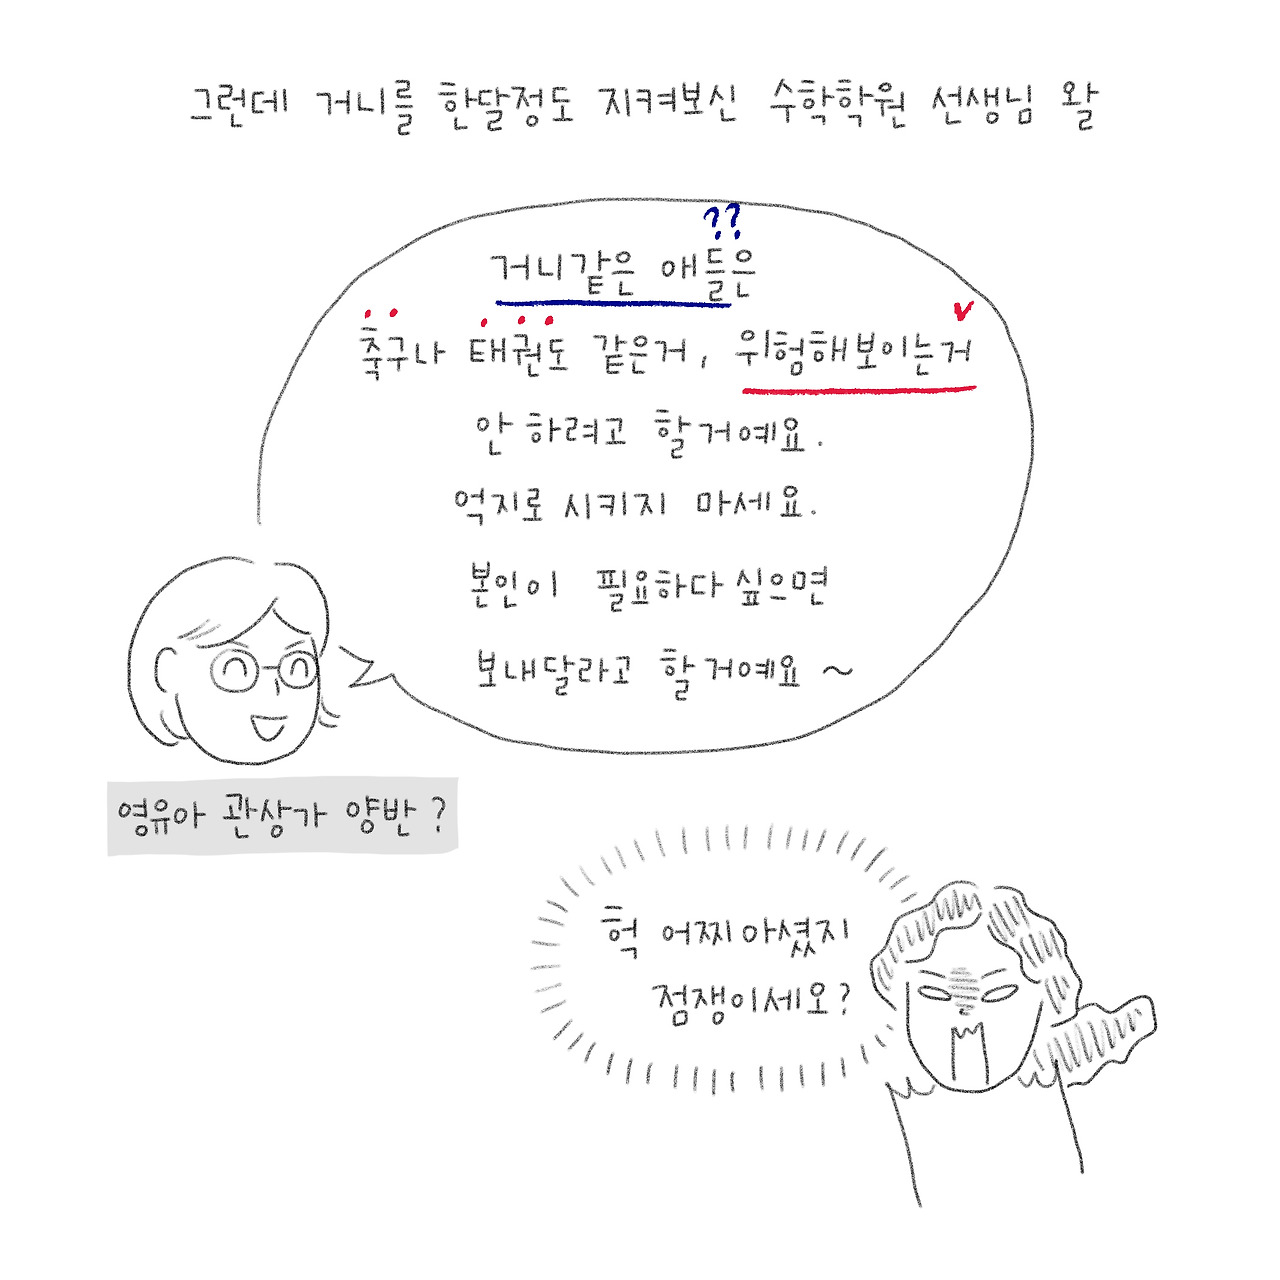 그런데 거니를 한달정도 지켜보신 수학학원 선생님 왈
??
거니같은 애들은
축구나 태권도 같은거, 위험해보이는거
안 하려고 할거예요.
억지로 시키지 마세요.
본인이 필요하다 싶으면
보내달라고 할거예요 ~
영유아 관상가 양반?
헉 어찌아셨지
점쟁이세오?